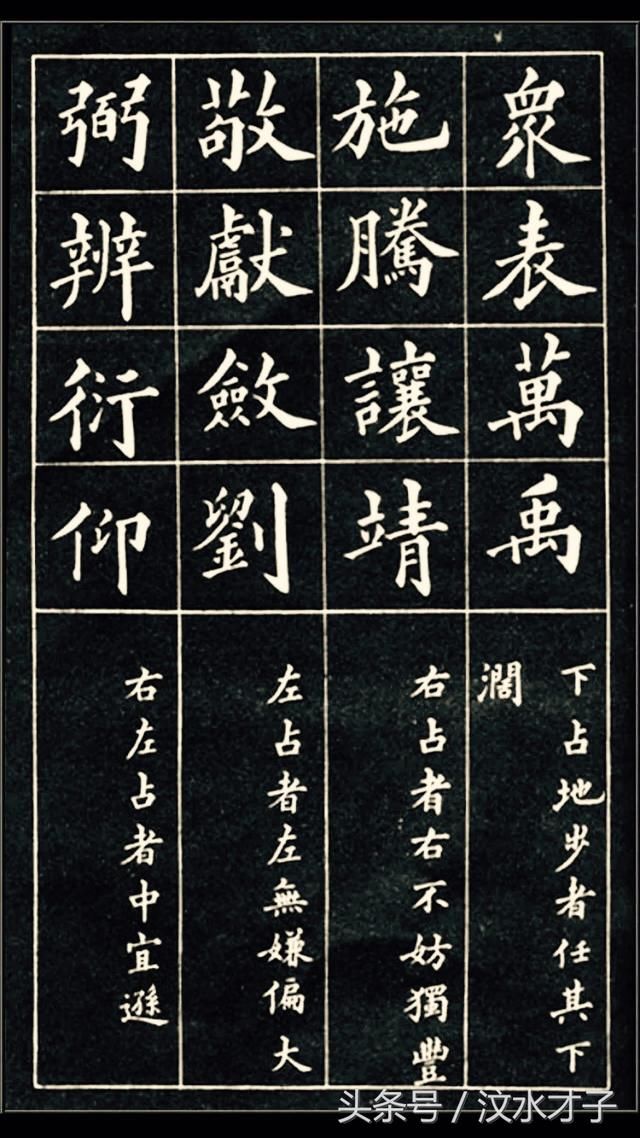 衆表萬禹
下占地步者任其下
濶
施騰讓靖
右占者右不妨獨豐
敬獻斂劉
左占者左無嫌偏大
弼辨衍仰
右左占者中宜遜
头条号 / 汶水才子